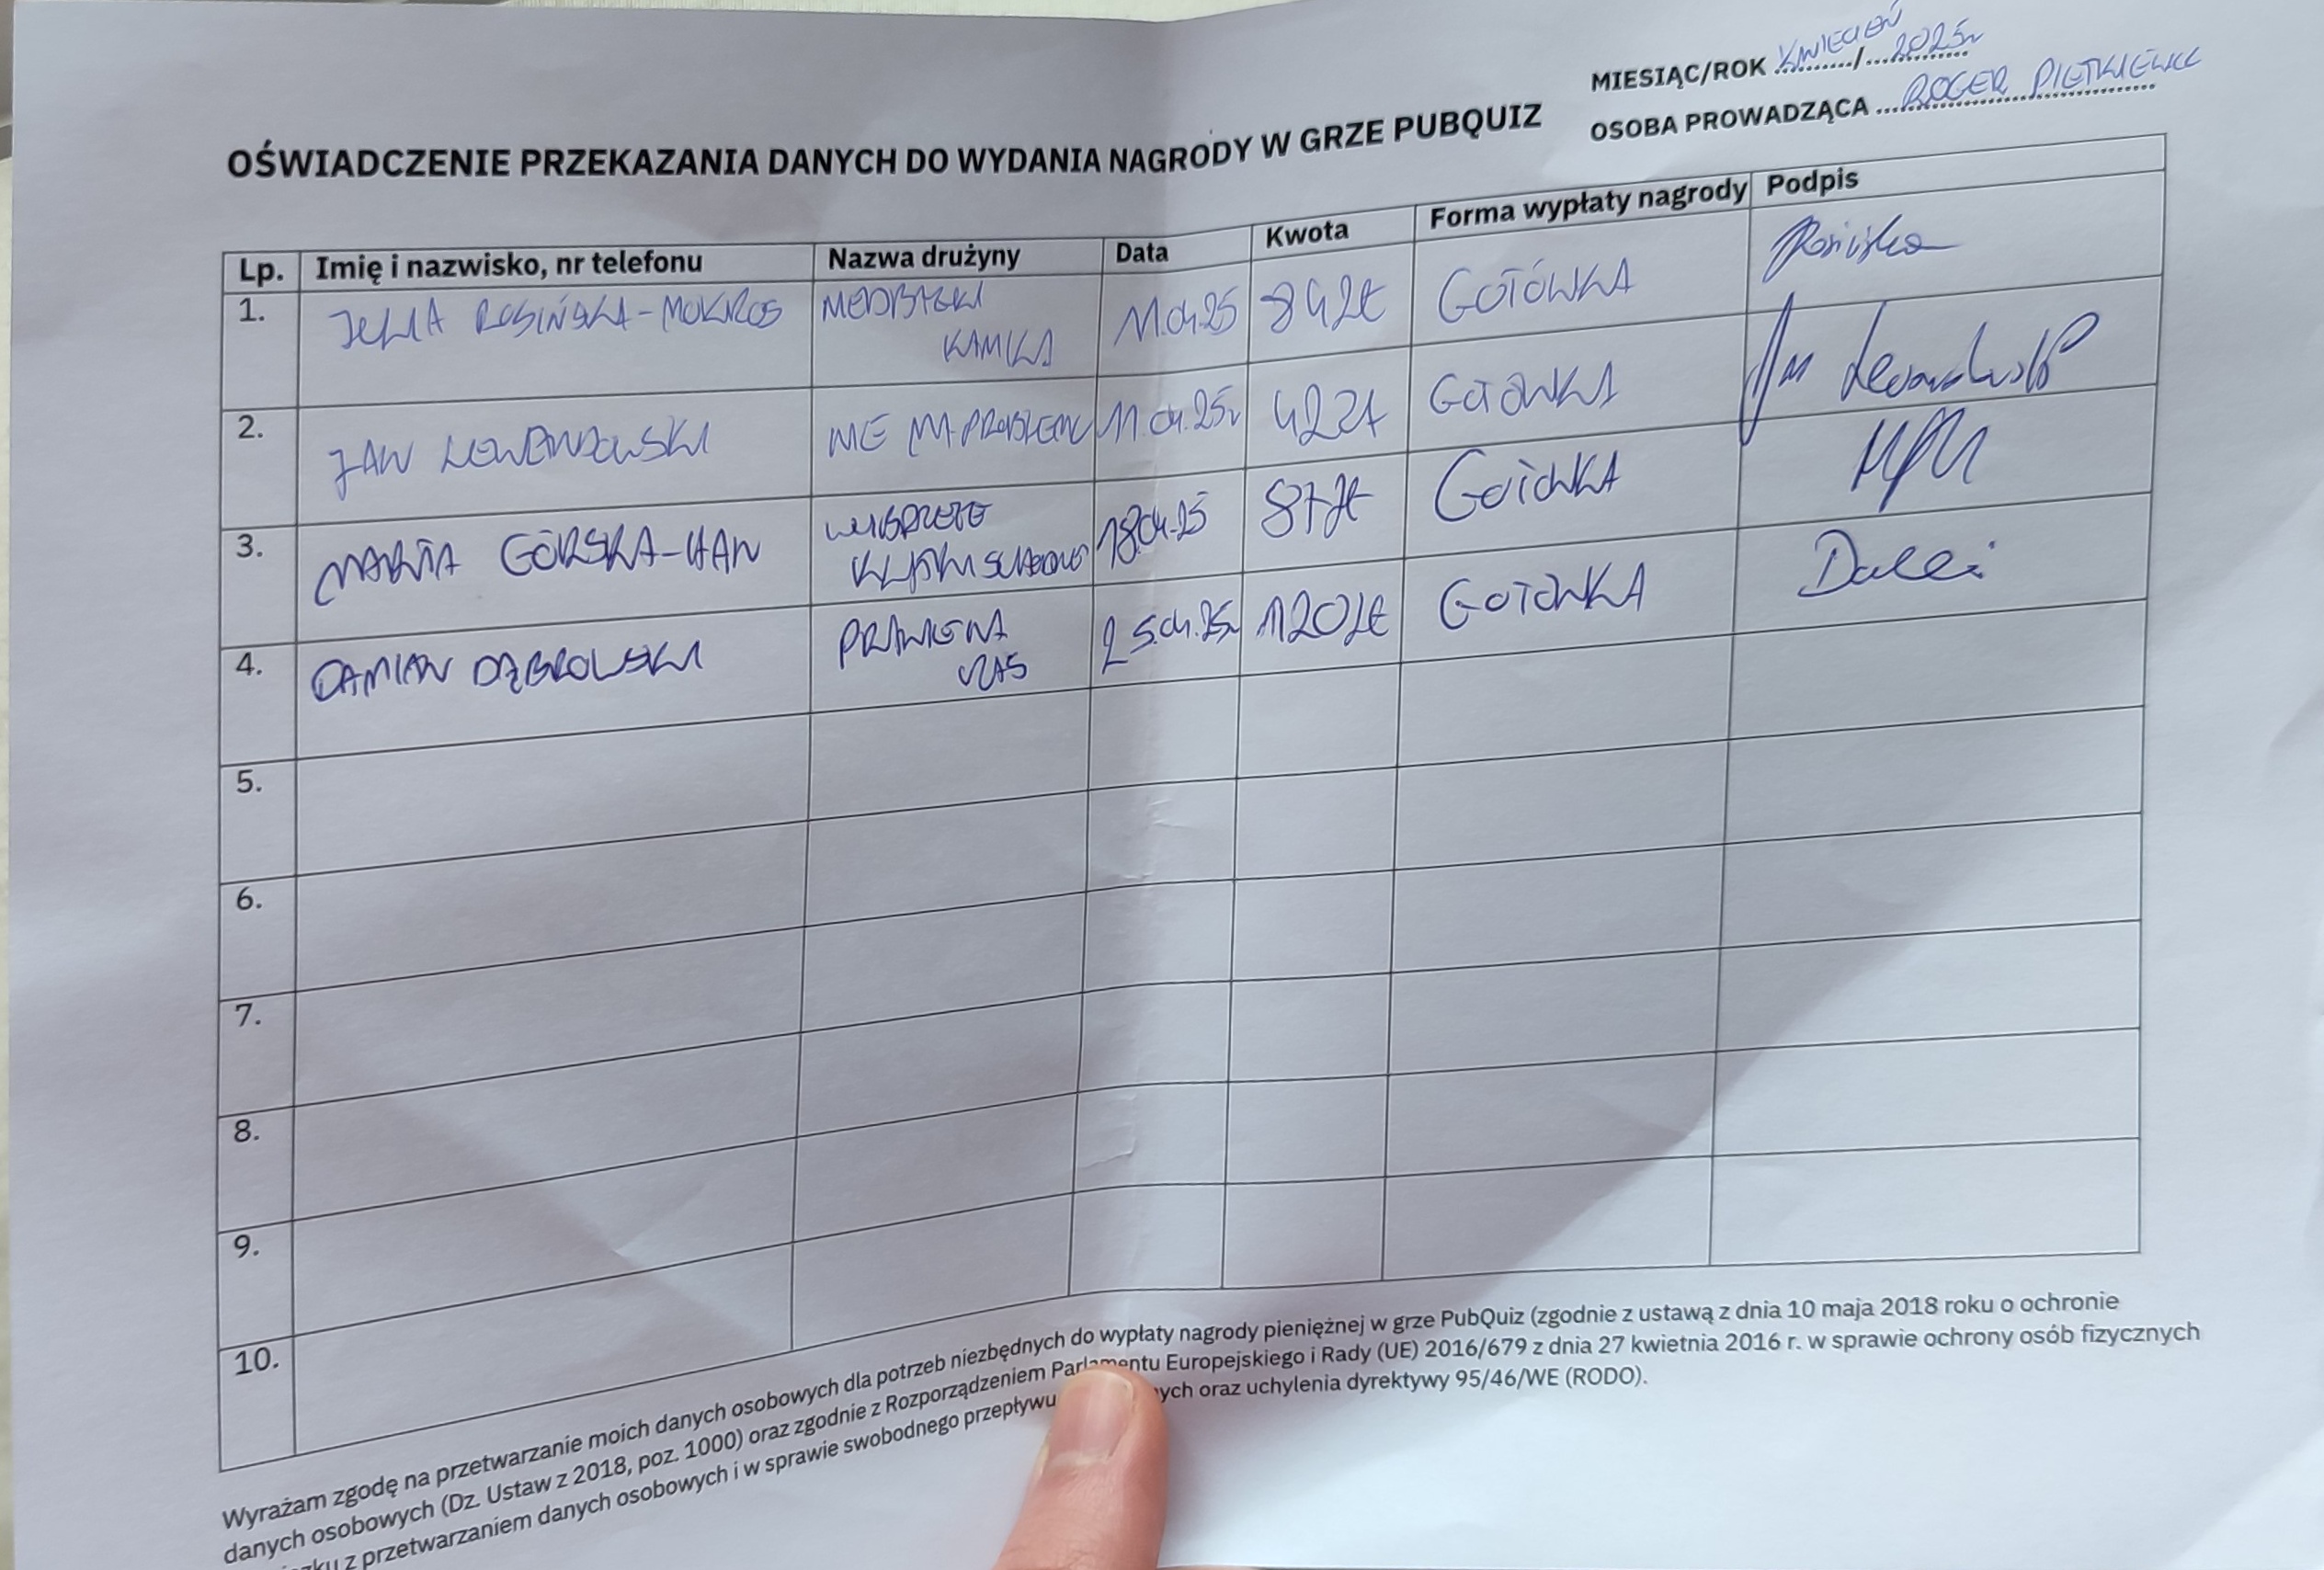 MIESIĄC/ROK KWIECIEŃ / 2025r
OSOBA PROWADZĄCA ROGER PIETKIEWICZ
OŚWIADCZENIE PRZEKAZANIA DANYCH DO WYDANIA NAGRODY W GRZE PUBQUIZ
Lp. Imię i nazwisko, nr telefonu Nazwa drużyny Data Kwota Forma wypłaty nagrody Podpis
1. ROSIŃSKA-MOKROS 11.04.25 84zł GOTÓWKA
2. JAN LEWANDOWSKI NIE MA PROBLEMU 11.04.25r 42zł GOTÓWKA
3. MARTA GÓRSKA-HAN 18.04.25 87zł GOTÓWKA
4. DAMIAN DĄBROWSKI 25.04.25r 120zł GOTÓWKA
5.
6.
7.
8.
9.
10.
Wyrażam zgodę na przetwarzanie moich danych osobowych dla potrzeb niezbędnych do wypłaty nagrody pieniężnej w grze PubQuiz (zgodnie z ustawą z dnia 10 maja 2018 roku o ochronie
danych osobowych (Dz. Ustaw z 2018, poz. 1000) oraz zgodnie z Rozporządzeniem Parlamentu Europejskiego i Rady (UE) 2016/679 z dnia 27 kwietnia 2016 r. w sprawie ochrony osób fizycznych
z przetwarzaniem danych osobowych i w sprawie swobodnego przepływu oraz uchylenia dyrektywy 95/46/WE (RODO).